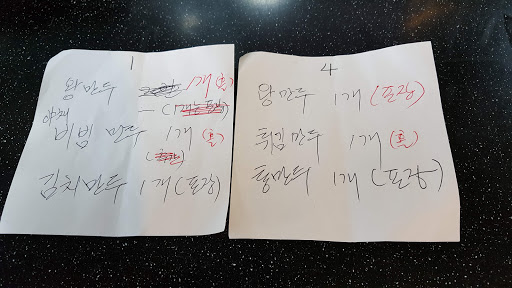 1
왕만두 1개 (홀)
야채
비빔 만두 1개 (홀)
김치만두 1개 (포장)
4
왕만두 1개 (포장)
튀김만두 1개 (홀)
통만두 1개 (포장)